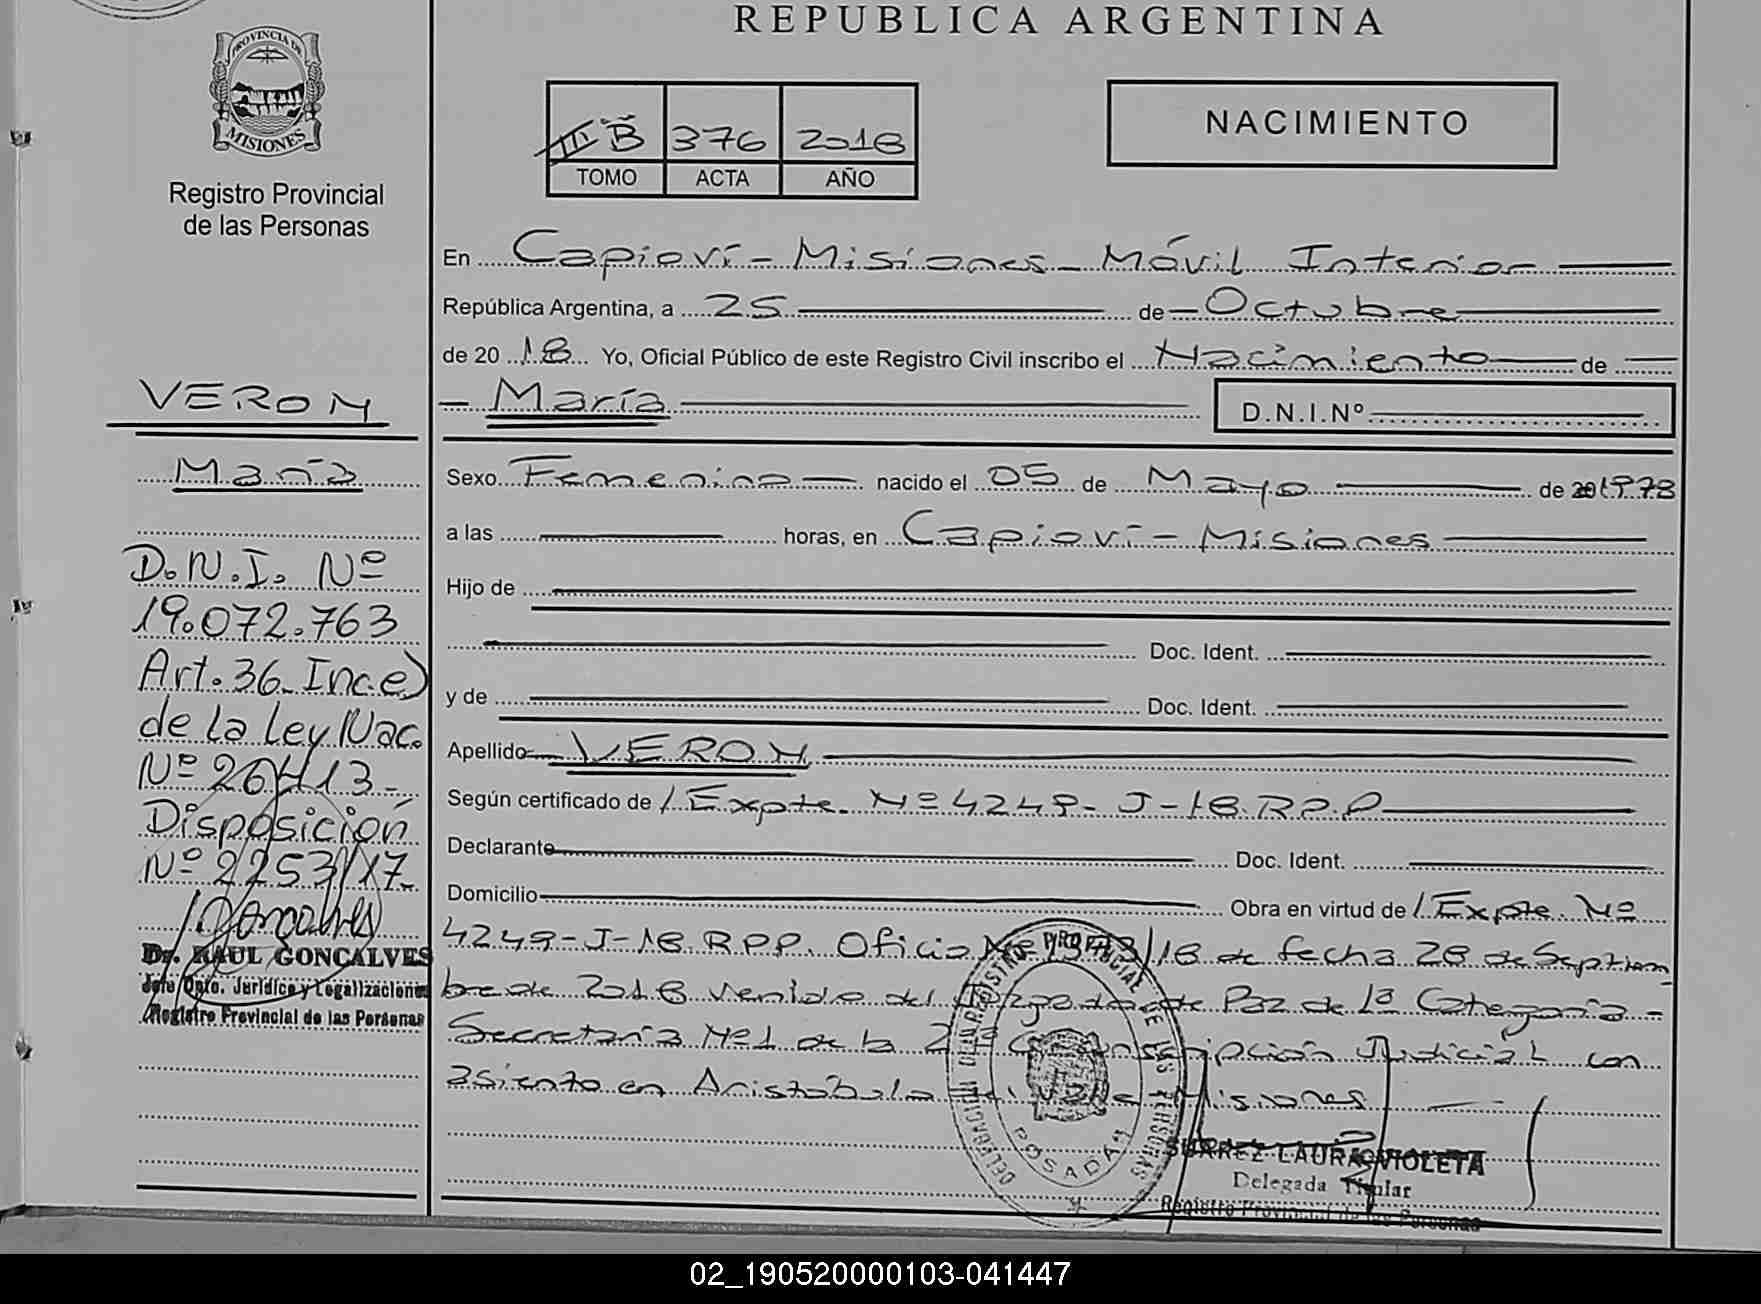 REPUBLICA ARGENTINA
PROVINCIA DE
MISIONES
Registro Provincial
de las Personas
III B 376 2018
TOMO ACTA AÑO
NACIMIENTO
En Capioví - Misiones - Móvil Interior
República Argentina, a 25 de Octubre
de 20 18 Yo, Oficial Público de este Registro Civil inscribo el Nacimiento de
María D.N.I.Nº
Sexo Femenino nacido el 05 de Mayo de 1978
a las horas, en Capioví - Misiones
Hijo de
Doc. Ident.
y de Doc. Ident.
Apellido VERON
Según certificado de / Expte. Nº 4249-J-18.R.P.P
Declarante Doc. Ident.
Domicilio Obra en virtud de / Expte. Nº
4249-J-18 R.P.P. Oficio Nº /18 de fecha 28 de Septiem
bre de 2018 venido del Juzgado de Paz de 1ª Categoria -
Secretaría Nº1 de la 2da Circunscripción Judicial con
asiento en Aristóbulo del Valle Misiones
VERON
María
D.N.I. Nº
19.072.763
Art. 36 Inc.e)
de la Ley Nac.
Nº 26413 -
Disposición
Nº 2253/17-
Dr. RAUL GONCALVES
Jefe Dpto. Jurídico y Legalizaciones
Registro Provincial de las Personas
POSADAS
SUAREZ LAURA VIOLETA
Delegada Titular
Registro Provincial de las Personas
02_190520000103-041447